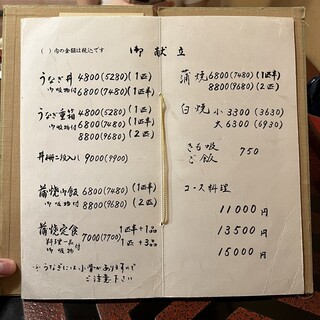 ( )内の金額は税込です
御献立
うなぎ丼 4800(5280) (1匹)
御吸物付 6800(7480) (1匹半)
うなぎ重箱 4800(5280) (1匹)
御吸物付 6800(7480) (1匹半)
8800(9680) (2匹)
丼(二段入り) 9000(9900)
蒲焼御飯 6800(7480) (1匹半)
御吸物付 8800(9680) (2匹)
蒲焼定食 1匹半+1品
料理一品 御吸物付 7000(7700) 1匹+3品
※うなぎには小骨がありますので
ご注意下さい
蒲焼 6800(7480) (1匹半)
8800(9680) (2匹)
白焼 小 3300(3630)
大 6300(6930)
きも吸 750
ご飯
コース料理
11000円
13500円
15000円